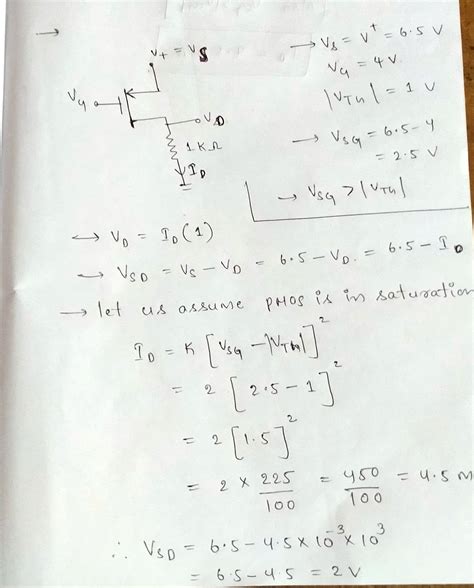 → V+ = VS
→ VS = V⁺ = 6.5 V
VG = 4 V
|VTh| = 1 V
→ VSG = 6.5 - 4
= 2.5 V
→ VSG > |VTh|
VG
VD
1KΩ
ID
→ VD = ID(1)
→ VSD = VS - VD = 6.5 - VD = 6.5 - ID
→ let us assume PMOS is in saturation
ID = K [VSG - |VTh|]²
= 2 [2.5 - 1]²
= 2 [1.5]²
= 2 × 225/100 = 450/100 = 4.5 m
∴ VSD = 6.5 - 4.5 × 10⁻³ × 10³
= 6.5 - 4.5 = 2V